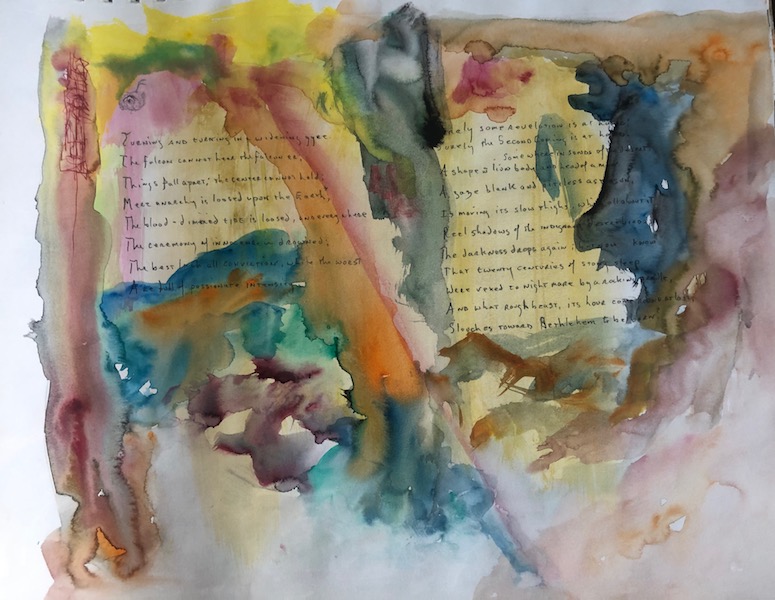 Turning and turning in a widening gyre
The falcon cannot hear the falconer,
Things fall apart; the center cannot hold;
Meer anarchy is loosed upon the Earth,
The blood-dimmed tide is loosed, and everywhere
The ceremony of innocence drowned;
The best lack all conviction, while the worst
Are full of passionate intensity
some revelation is at
Surely the Second Coming is at
Somewhere in sands of
A shape a lion body and head of a
A gaze blank and pitiless as
Is moving its slow thighs, while all about it
Reel shadows of the indignant
The darkness drops again know
That twenty centuries of stony sleep
Were vexed to nightmare by a rocking cradle
And what rough beast, its hour come
Slouches toward Bethlehem to be born